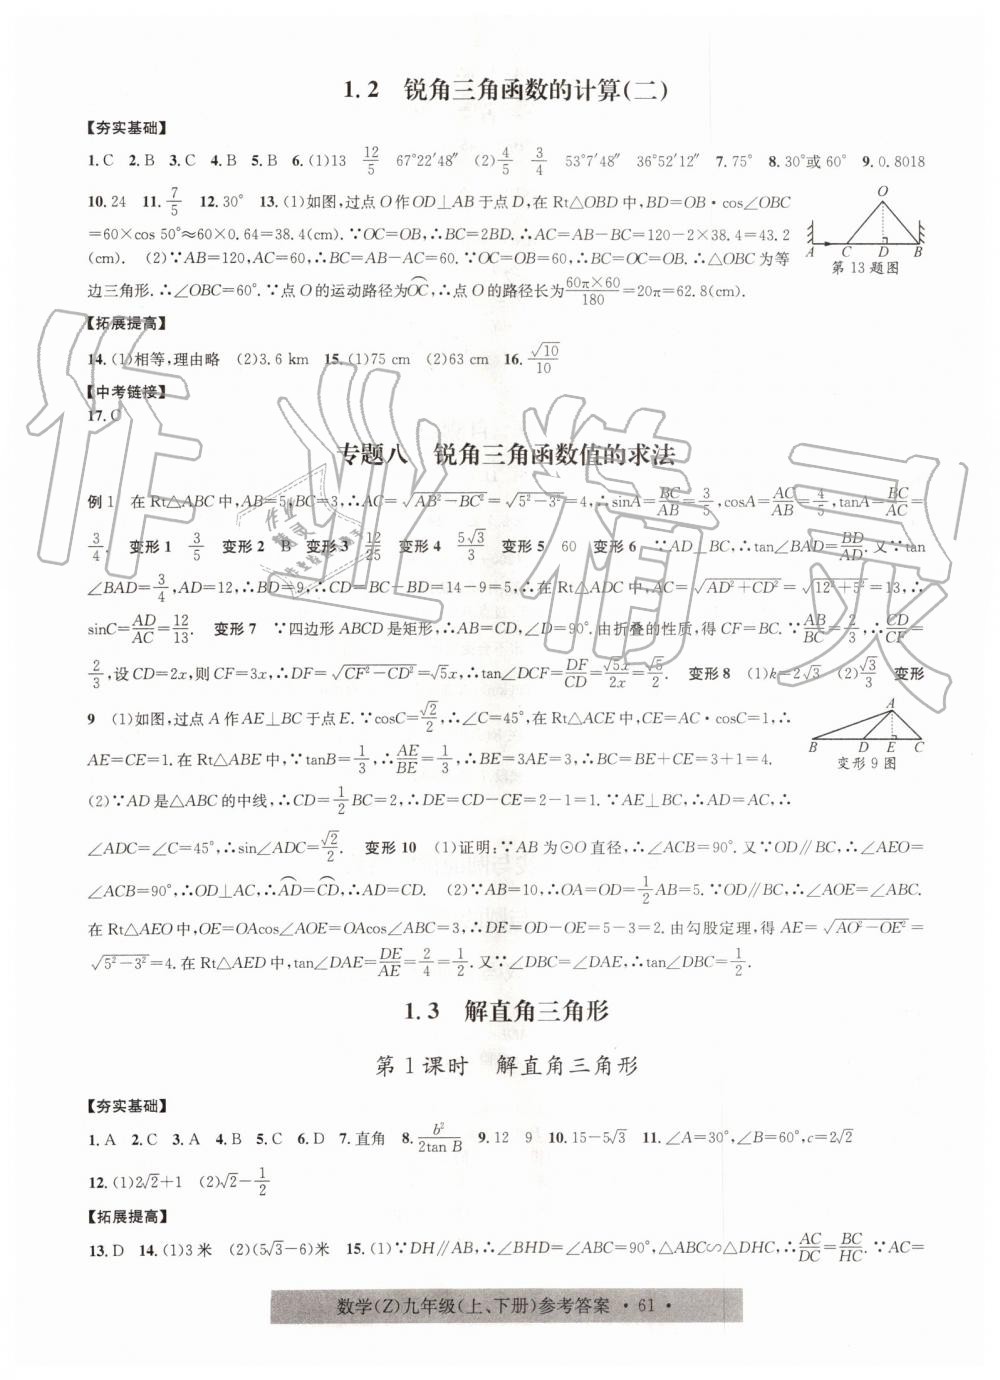 1.2 锐角三角函数的计算(二)
【夯实基础】
1.C 2.B 3.C 4.B 5.B 6.(1)13 12/5 67°22′48″ (2)4/5 3/4 53°7′48″ 36°52′12″ 7.75° 8.30°或60° 9.0.8018
10.24 11.7/5 12.30° 13.(1)如图,过点O作OD⊥AB于点D,在Rt△OBD中,BD=OB·cos∠OBC
=60×cos 50°≈60×0.64=38.4(cm).∵OC=OB,∴BC=2BD.∴AC=AB-BC=120-2×38.4=43.2
(cm). (2)∵AB=120,AC=60,∴BC=AB-AC=60.∵OC=OB=60,∴BC=OC=OB.∴△OBC为等
边三角形.∴∠OBC=60°.∵点O的运动路径为⌒OC,∴点O的路径长为60π×60/180=20π=62.8(cm).
O
A C D B
第13题图
【拓展提高】
14.(1)相等,理由略 (2)3.6 km 15.(1)75 cm (2)63 cm 16.√10/10
【中考链接】
17.C
专题八 锐角三角函数值的求法
例1 在Rt△ABC中,AB=5,BC=3,∴AC=√(AB²-BC²)=√(5²-3²)=4,∴sinA=BC/AB=3/5,cosA=AC/AB=4/5,tanA=BC/AC=
3/4. 变形1 3/5 变形2 B 变形3 12/25 变形4 5√3/3 变形5 60 变形6 ∵AD⊥BC,∴tan∠BAD=BD/AD.又∵tan
∠BAD=3/4,AD=12,∴BD=9,∴CD=BC-BD=14-9=5,∴在Rt△ADC中,AC=√(AD²+CD²)=√(12²+5²)=13,∴
sinC=AD/AC=12/13. 变形7 ∵四边形ABCD是矩形,∴AB=CD,∠D=90°.由折叠的性质,得CF=BC.∵AB/BC=2/3,∴CD/CF=
2/3,设CD=2x,则CF=3x,∴DF=√(CF²-CD²)=√5x,∴tan∠DCF=DF/CD=√5x/2x=√5/2. 变形8 (1)k=2√3 (2)√3/3 变形
9 (1)如图,过点A作AE⊥BC于点E.∵cosC=√2/2,∴∠C=45°,∴在Rt△ACE中,CE=AC·cosC=1,∴
AE=CE=1.在Rt△ABE中,∵tanB=1/3,∴AE/BE=1/3,∴BE=3AE=3,∴BC=BE+CE=3+1=4.
(2)∵AD是△ABC的中线,∴CD=1/2BC=2,∴DE=CD-CE=2-1=1.∵AE⊥BC,∴AD=AC,∴
A
B D E C
变形9图
∠ADC=∠C=45°,∴sin∠ADC=√2/2. 变形10 (1)证明:∵AB为⊙O直径,∴∠ACB=90°.又∵OD∥BC,∴∠AEO=
∠ACB=90°,∴OD⊥AC,∴⌒AD=⌒CD,∴AD=CD. (2)∵AB=10,∴OA=OD=1/2AB=5.∵OD∥BC,∴∠AOE=∠ABC.
在Rt△AEO中,OE=OAcos∠AOE=OAcos∠ABC=3,∴DE=OD-OE=5-3=2.由勾股定理,得AE=√(AO²-OE²)=
√(5²-3²)=4.在Rt△AED中,tan∠DAE=DE/AE=2/4=1/2.又∵∠DBC=∠DAE,∴tan∠DBC=1/2.
1.3 解直角三角形
第1课时 解直角三角形
【夯实基础】
1.A 2.C 3.A 4.B 5.C 6.D 7.直角 8.b²/2tan B 9.12 9 10.15-5√3 11.∠A=30°,∠B=60°,c=2√2
12.(1)2√2+1 (2)√2-1/2
【拓展提高】
13.D 14.(1)3米 (2)(5√3-6)米 15.(1)∵DH∥AB,∴∠BHD=∠ABC=90°,△ABC∽△DHC,∴AC/DC=BC/HC.∵AC=
数学(Z)九年级(上、下册)参考答案 · 61 ·
作业精灵